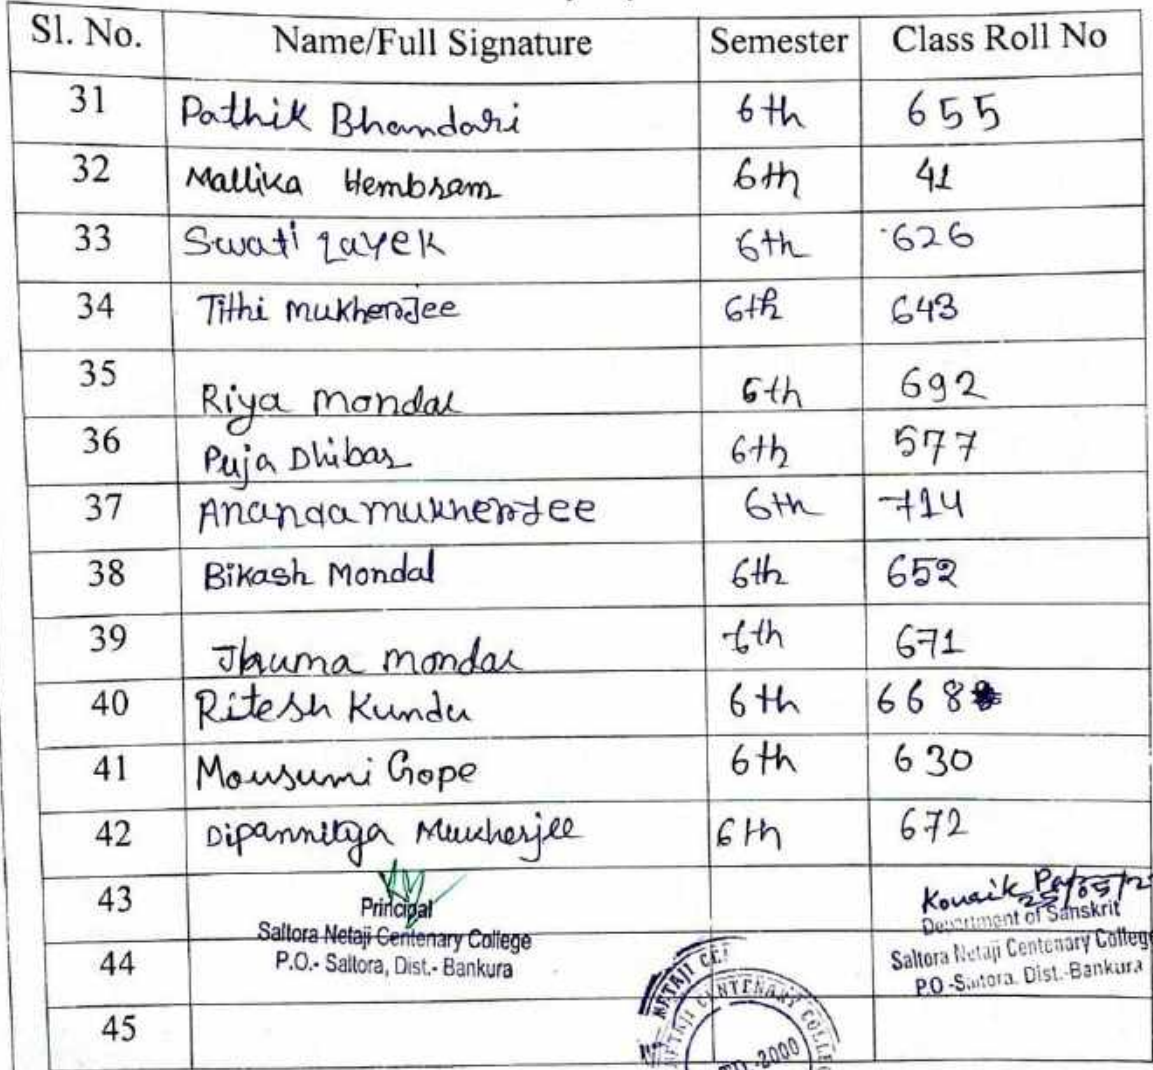 Sl. No. Name/Full Signature Semester Class Roll No
31 Pathik Bhandari 6th 655
32 Mallika Hembram 6th 41
33 Swati Layek 6th 626
34 Tithi Mukherjee 6th 643
35 Riya Mondal 6th 692
36 Puja Dhibar 6th 577
37 Ananda Mukherjee 6th 714
38 Bikash Mondal 6th 652
39 Jhuma Mondal 6th 671
40 Ritesh Kundu 6th 668
41 Mousumi Gope 6th 630
42 Mukherjee 6th 672
43
Principal
Saltora Netaji Centenary College
P.O.- Saltora, Dist.- Bankura
Kousik
Department of Sanskrit
Saltora Netaji Centenary College
P.O -Saltora. Dist.-Bankura
44
45
NETAJI CE
NETAJI CENTENARY COLLE
-2000